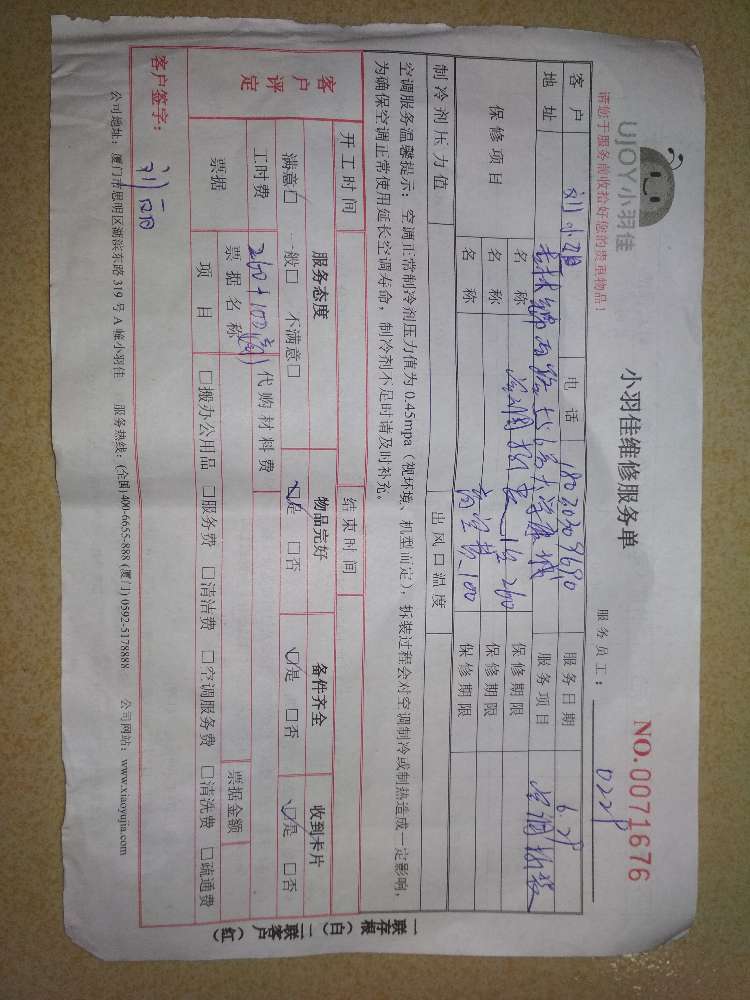 UJOY小羽佳
小羽佳维修服务单
NO.0071676
请您于服务前收拾好您的贵重物品!
服务员工:
客户 刘小姐 电话 服务日期 6.28
地址 服务项目 空调拆装
保修项目 名称 空调拆装 1台 260 保修期限
名称 高空费 100 保修期限
名称 保修期限
制冷剂压力值 出风口温度
空调服务温馨提示:空调正常制冷剂压力值为0.45mpa(视环境、机型而定),拆装过程会对空调制冷或制热造成一定影响,
为确保空调正常使用延长空调寿命,制冷剂不足时请及时补充。
开工时间 结束时间
客户评定 服务态度 物品完好 备件齐全 收到卡片
满意□ 一般□ 不满意□ ☑是 □否 ☑是 □否 ☑是 □否
工时费 260+100 代购材料费
票据 票据名称 票据金额
项目 □搬办公用品 □服务费 □清洁费 □空调服务费 □清洗费 □疏通费
客户签字:
公司地址:厦门市思明区湖滨东路319号A幢小羽佳 服务热线:(全国)400-6655-888 (厦门)0592-5178888 公司网站:www.xiaoyujia.com
一联存根(白)二联客户(红)